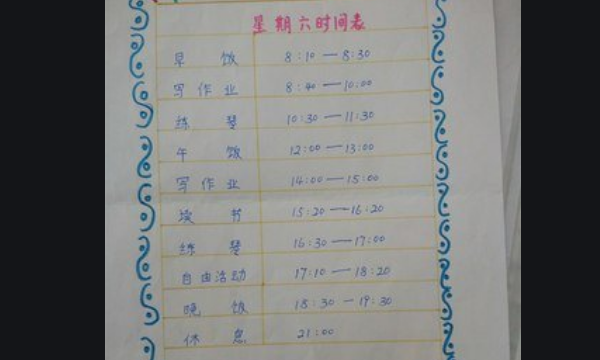 星期六时间表
早饭 8:10—8:30
写作业 8:40—10:00
练琴 10:30—11:30
午饭 12:00—13:00
写作业 14:00—15:00
读书 15:20—16:20
练琴 16:30—17:00
自由活动 17:10—18:20
晚饭 18:30—19:30
休息 21:00